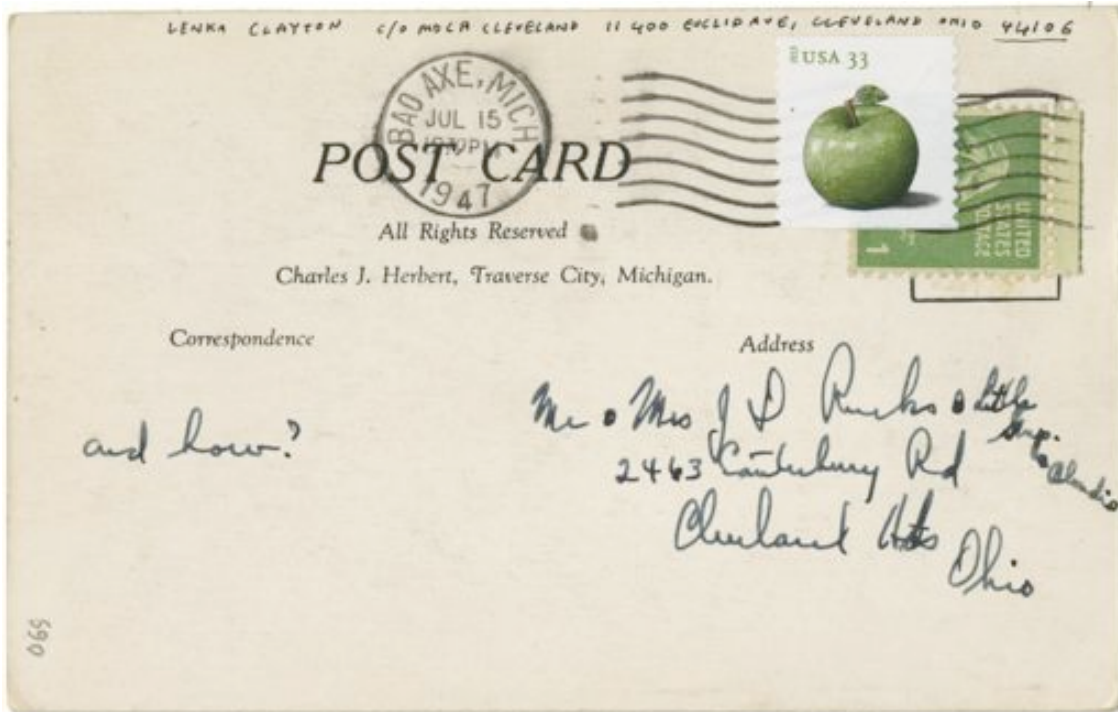 LENKA CLAYTON c/o MOCA CLEVELAND 11400 EUCLID AVE, CLEVELAND OHIO 44106
USA 33
BAD AXE, MICH
JUL 15
PM
1947
POST CARD
UNITED
STATES
POSTAGE
1
All Rights Reserved
Charles J. Herbert, Traverse City, Michigan.
Correspondence
Address
and how?
Mr & Mrs J D Rucks & Little
2463 Canterbury Rd
Cleveland Hts
Ohio
069